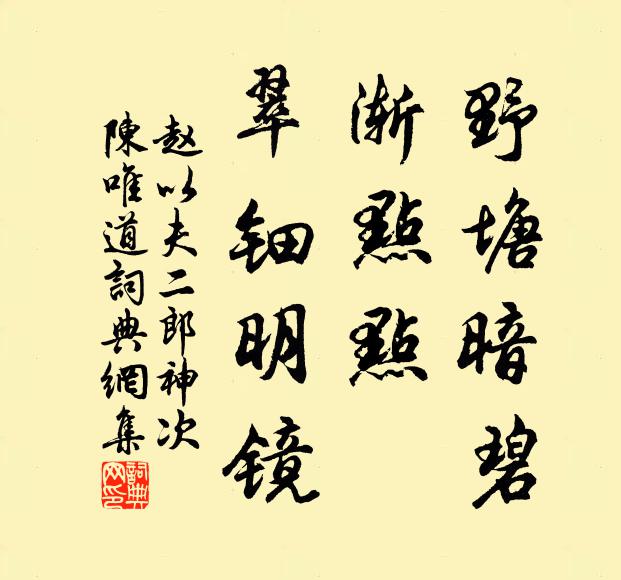 野塘暗碧
渐點點
翠钿明镜
赵以夫二郎神次
陳唯道詞典網集
詞典网印